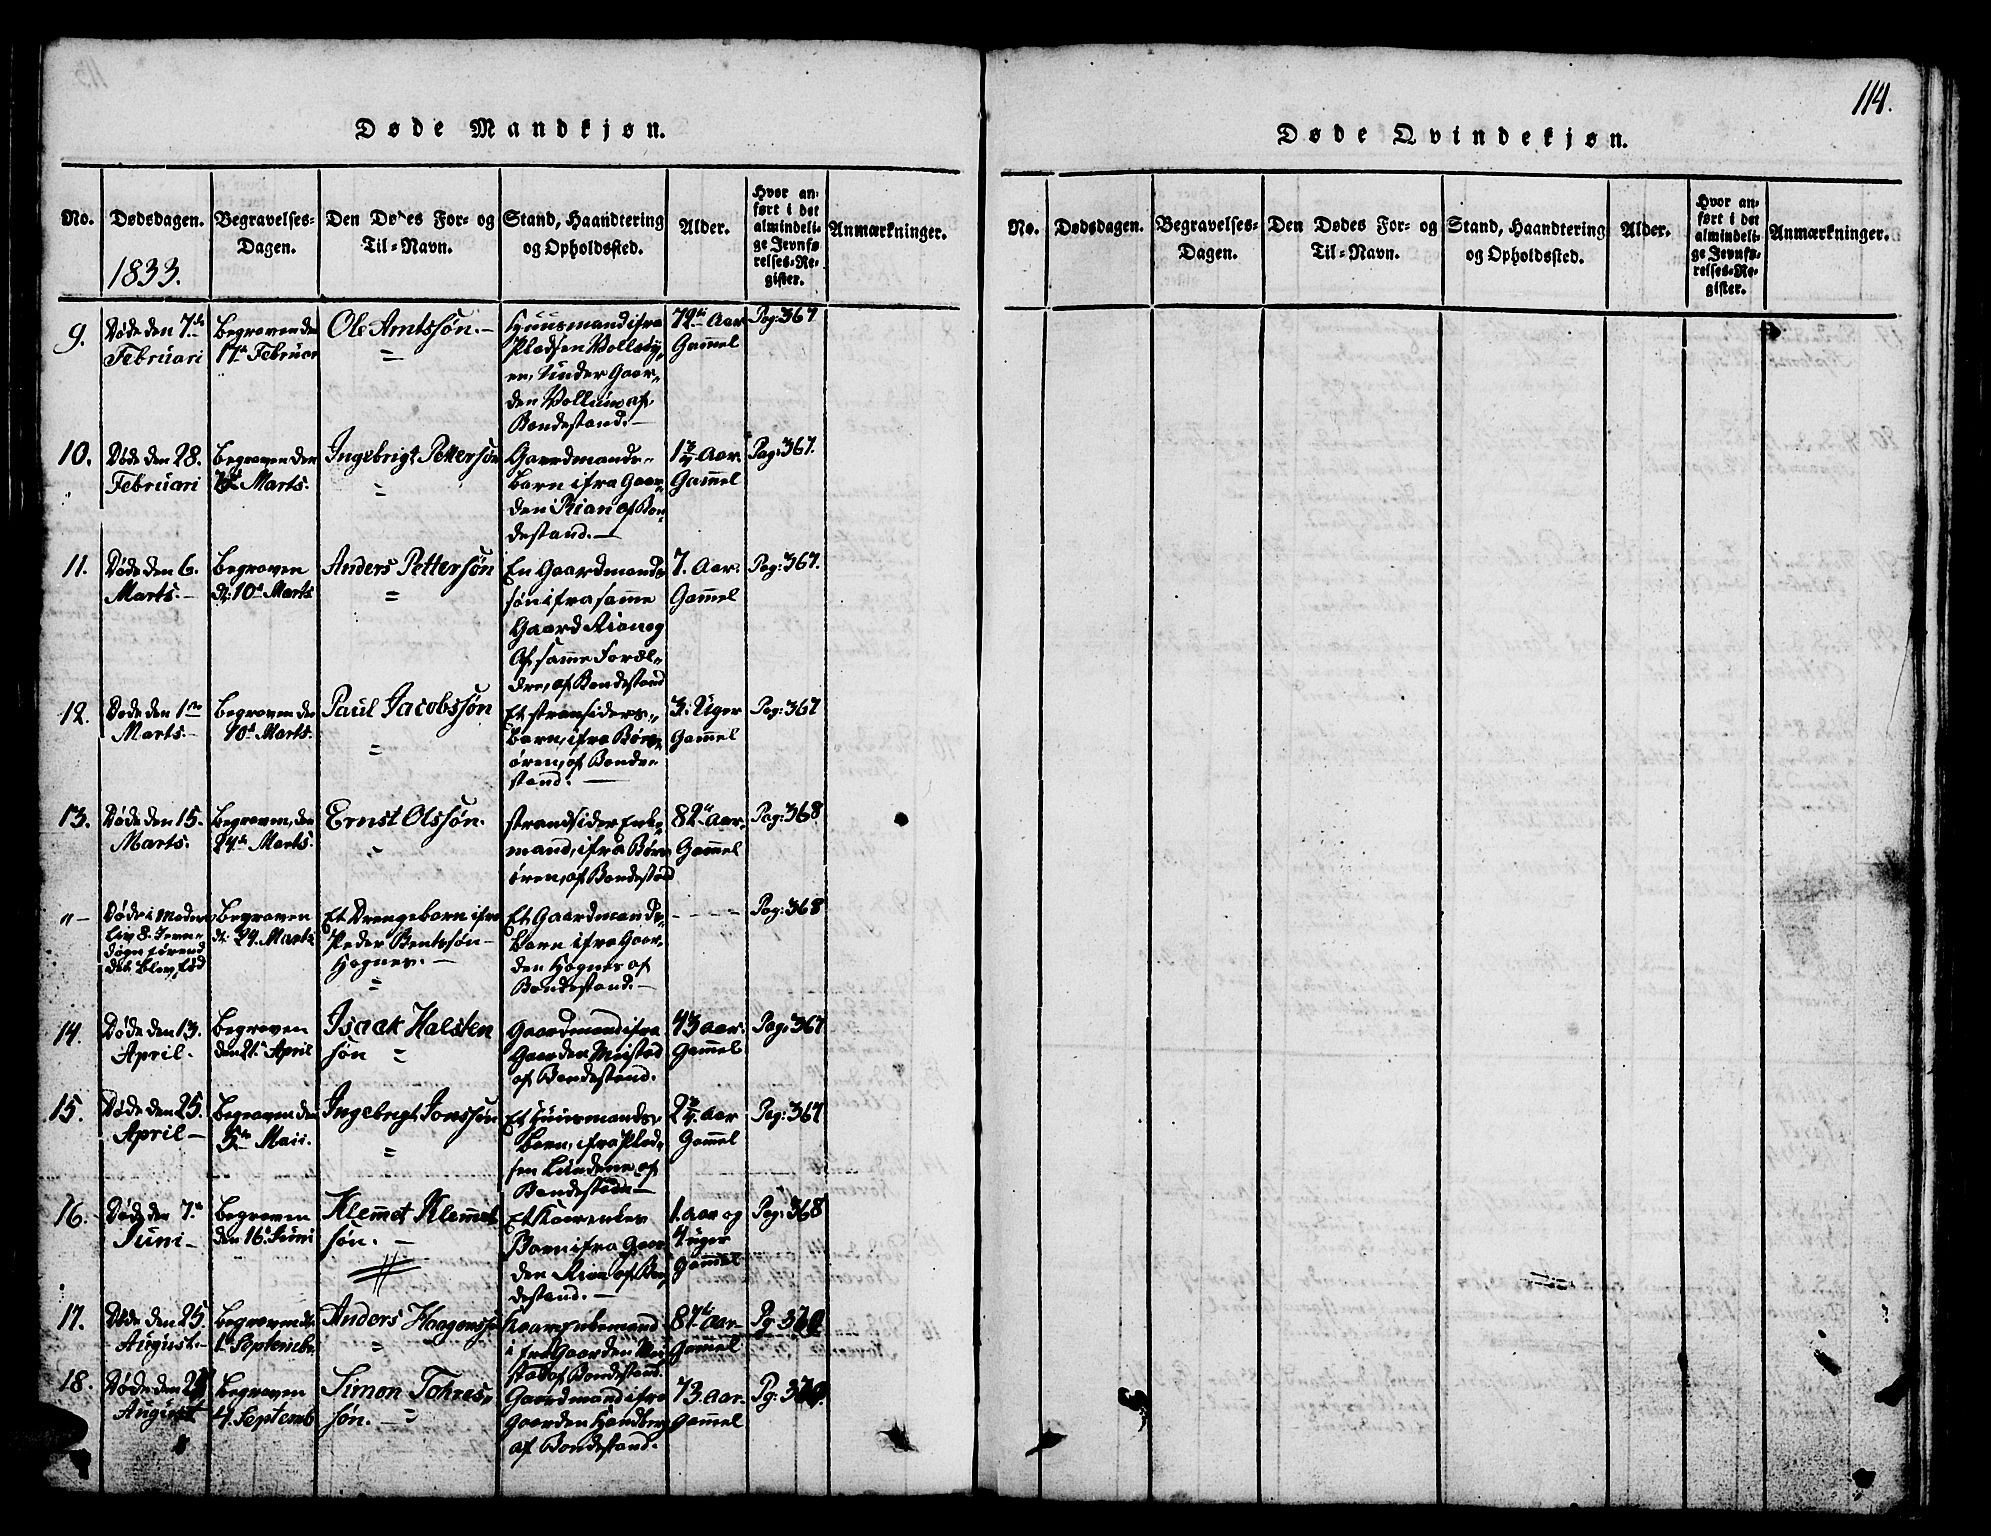 114.
Døde Mandkjøn.
No.
Dødsdagen.
1833.
Begravelses-
Dagen.
Den Dødes For- og
Til-Navn.
Stand, Haandtering
og Opholdssted.
Alder.
Hvor an-
ført i det
almindeli-
ge Jevnfø-
relses-Re-
gister.
Anmærkninger.
9.
Døde den 7de
Februari
Begraven den
17de Februar
Ole Arntssøn. –
Huusmand ifra
Pladsen Vollesøy-
en, Under Gaar-
den Vollum af
Bondestand. –
72de Aar
Gammel
Pag: 367
10.
Døde den 28.
Februari
Begraven den
Marts.
Ingebrigt Pettersøn
Gaardmands-
Barn ifra Gaar-
den Rian af Bon-
destand. –
Aar
Gammel
Pag: 367.
11.
Døde den 6.
Marts. –
Begraven
d: 10de Marts
Anders Pettersøn
En Gaardmands
søn ifra samme
Gaard Rian og
Af samme Foræl-
dre, af Bondestand
7. Aar.
Gammel
Pag: 367.
12.
Døde den 1ste
Marts. –
Begraven den
10de Marts.
Paul Jacobssøn
Et stransiders-
Barn, ifra Børs-
øren, af Bonde-
stand. –
3. Uger
Gammel
Pag: 367
13.
Døde den 15.
Marts.
Begraven, den
24de Marts.
Ernst Olssøn.
strandsider Enke-
mand, ifra Børs-
øren, af Bondestad
82de Aar.
Gammel
Pag: 368
"–
Døde i Moders
Liv 8. Jevn-
døgn førend
det Blev fød
Begraven
d: 24. Marts
Et Drengebarn ifra
Peder Bentssøn –
Hognes. –
Et Gaardmands
Barn ifra Gaar-
den Hognes af
Bondestand. –
Pag: 368
14.
Døde den 13.
April.
Begraven
den 21de April
Isaak Halsten
søn
Gaardmand ifra
Gaarden Meistad
af Bondestand.
43 Aar.
Gammel
Pag: 367
15.
Døde den 25.
April –
Begraven den
5te Maii.
Ingebrigt Jonssøn
Et Huusmands-
Barn, ifra Plad-
sen Lundene af
Bondestade –
Aar
Gammel
Pag: 367
16.
Døde den 7de
Juni –
Begraven
den 16de Juni
Klemmet Klemmet
søn. –
Et
Barn ifra Gaar-
den Rian af Bon-
destand. –
1. Aar og
4 uger
Gammel
Pag: 368
17.
Døde den 25.
August. –
Begraven d:
1ste Septembr.
Anders Haagenssøn
mand
ifra Gaarden Mei-
stad af Bondestand.
Aar
Gammel
Pg:
18.
Døde den
August
Begraven
4. Septemb
Simon Tohres-
søn. –
Gaardmand ifra
Gaarden Handberg
af Bondestand.
73. Aar.
Gammel
Pg:
Døde Qvindekjøn.
No.
Dødsdagen.
Begravelses-
Dagen.
Den Dødes For- og
Til-Navn.
Stand, Haandtering
og Opholdssted.
Alder.
Hvor an-
ført i det
almindeli-
ge Jevnfø-
relses-Re-
gister.
Anmærkninger.